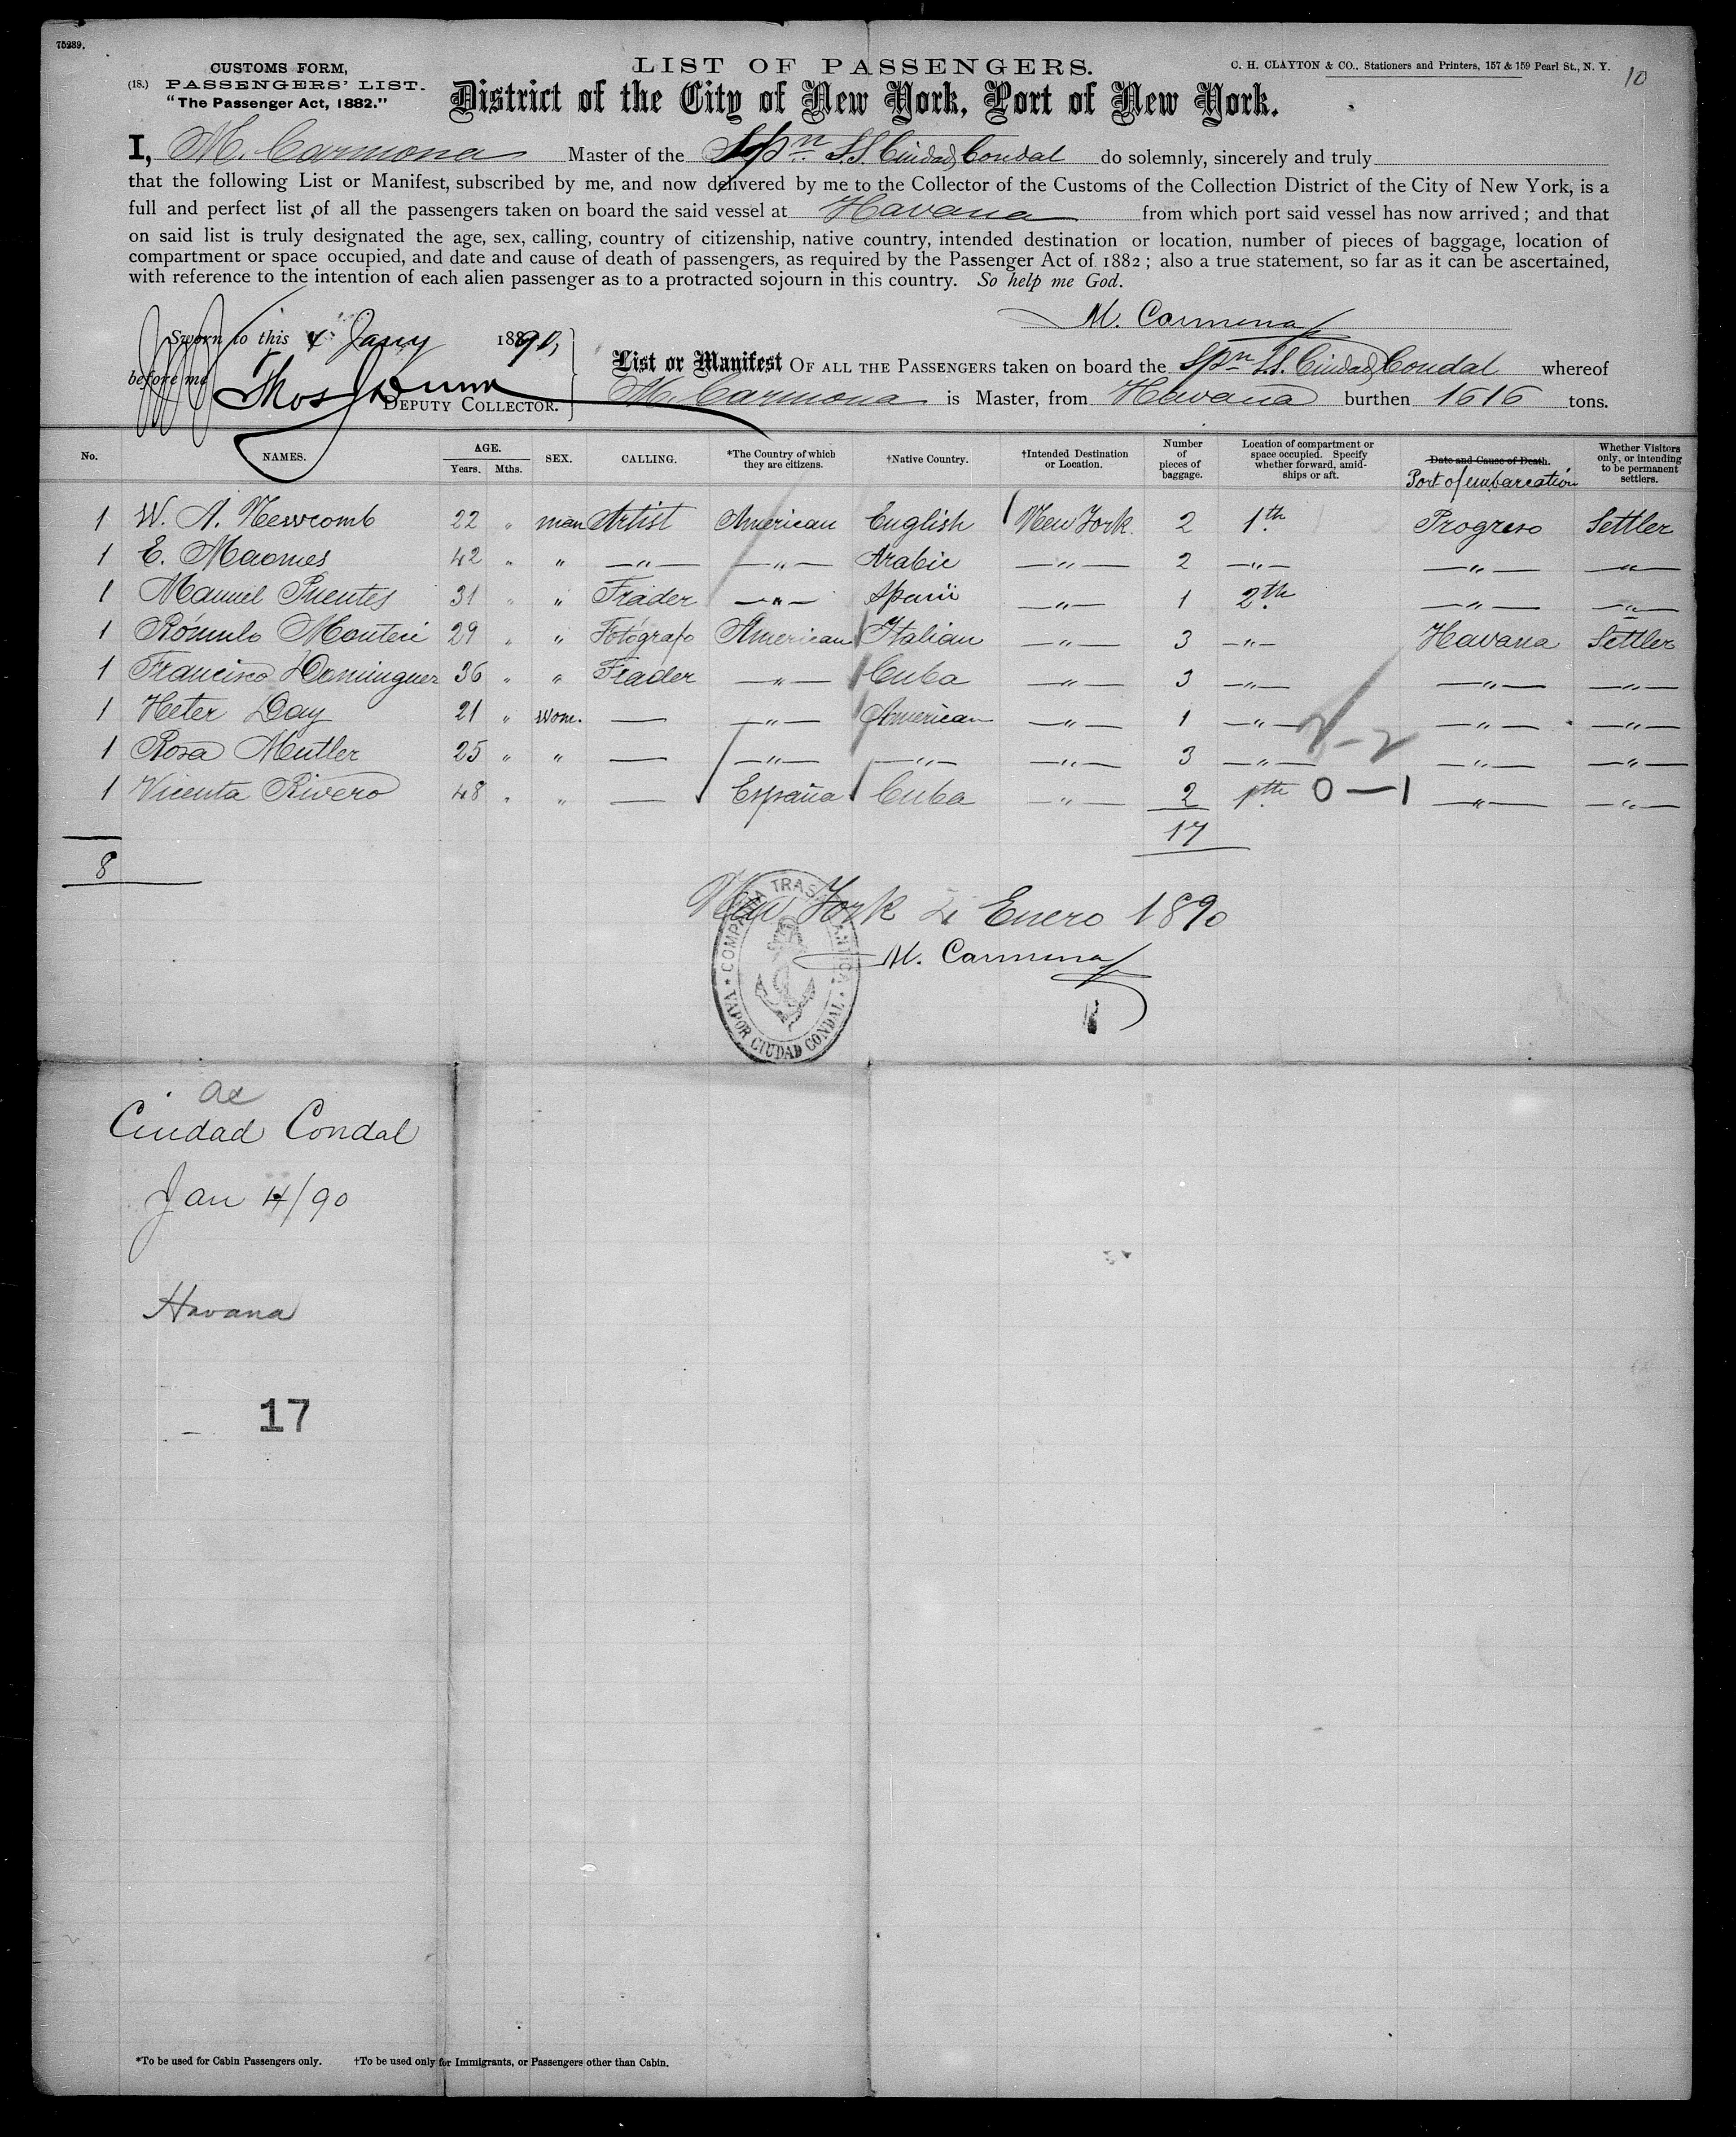 75289.
CUSTOMS FORM,
(18.) PASSENGERS' LIST.
"The Passenger Act, 1882."
LIST OF PASSENGERS.
C. H. CLAYTON & CO.. Stationers and Printers, 157 & 159 Pearl St., N. Y.
10
District of the City of New York, Port of New York.
I, M. Carmona Master of the Spn S.S. Ciudad Condal do solemnly, sincerely and truly
that the following List or Manifest, subscribed by me, and now delivered by me to the Collector of the Customs of the Collection District of the City of New York, is a
full and perfect list of all the passengers taken on board the said vessel at Havana from which port said vessel has now arrived; and that
on said list is truly designated the age, sex, calling, country of citizenship, native country, intended destination or location, number of pieces of baggage, location of
compartment or space occupied, and date and cause of death of passengers, as required by the Passenger Act of 1882; also a true statement, so far as it can be ascertained,
with reference to the intention of each alien passenger as to a protracted sojourn in this country. So help me God.
M. Carmona
Sworn to this 4 Jany 1890,
before me Thos J Dunn
DEPUTY COLLECTOR.
List or Manifest OF ALL THE PASSENGERS taken on board the Spn S.S. Ciudad Condal whereof
M. Carmona is Master, from Havana burthen 1616 tons.
No. NAMES. AGE. Years. Mths. SEX. CALLING. *The Country of which they are citizens. †Native Country. †Intended Destination or Location. Number of pieces of baggage. Location of compartment or space occupied. Specify whether forward, amidships or aft. Date and Cause of Death. Port of embarcation Whether Visitors only, or intending to be permanent settlers.
1 W. A. Newcomb 22 " man Artist American English New York. 2 1.th Progreso Settler
1 E. Maomes 42 " " —"— —"— Arabic —"— 2 —"— —"— —"—
1 Manuel Puentes 31 " " Trader —"— —"— 1 2.th —"— —"—
1 Rómulo Monteri 29 " " Fotógrafo American Italian —"— 3 —"— Havana Settler
1 Francisco Dominguez 36 " " Trader —"— Cuba —"— 3 —"— —"— —"—
1 Heter Day 21 " wom. — —"— American —"— 1 —"— —"— —"—
1 Rosa Mutler 25 " " — —"— —"— —"— 3 —"— 2-2 —"— —"—
1 Vicenta Rivero 48 " " — España Cuba —"— 2 1.th 0—1 —"— —"—
17
8
New York 4 Enero 1890
M. Carmona
COMPAÑIA TRASATLANTICA
VAPOR CIUDAD CONDAL
Ciudad Condal
Jan 4/90
Havana
17
*To be used for Cabin Passengers only. †To be used only for Immigrants, or Passengers other than Cabin.